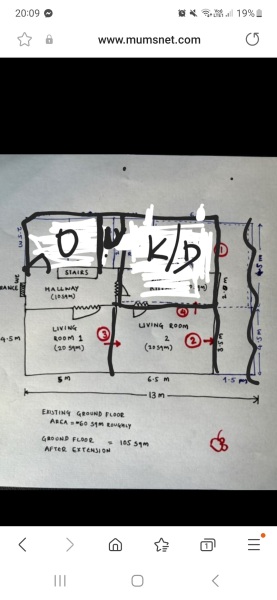 20:09
19%
www.mumsnet.com
1
O
U
K/D
STAIRS
HALLWAY
(10 SQM)
LIVING
ROOM 1
(20 SQM)
LIVING ROOM
2
(20 SQM)
3
2
4
4.5m
5 m
6.5 m
1.5 m
13 m
EXISTING GROUND FLOOR
AREA = ~60 SQM ROUGHLY
GROUND FLOOR = 105 SQM
AFTER EXTENSION
1